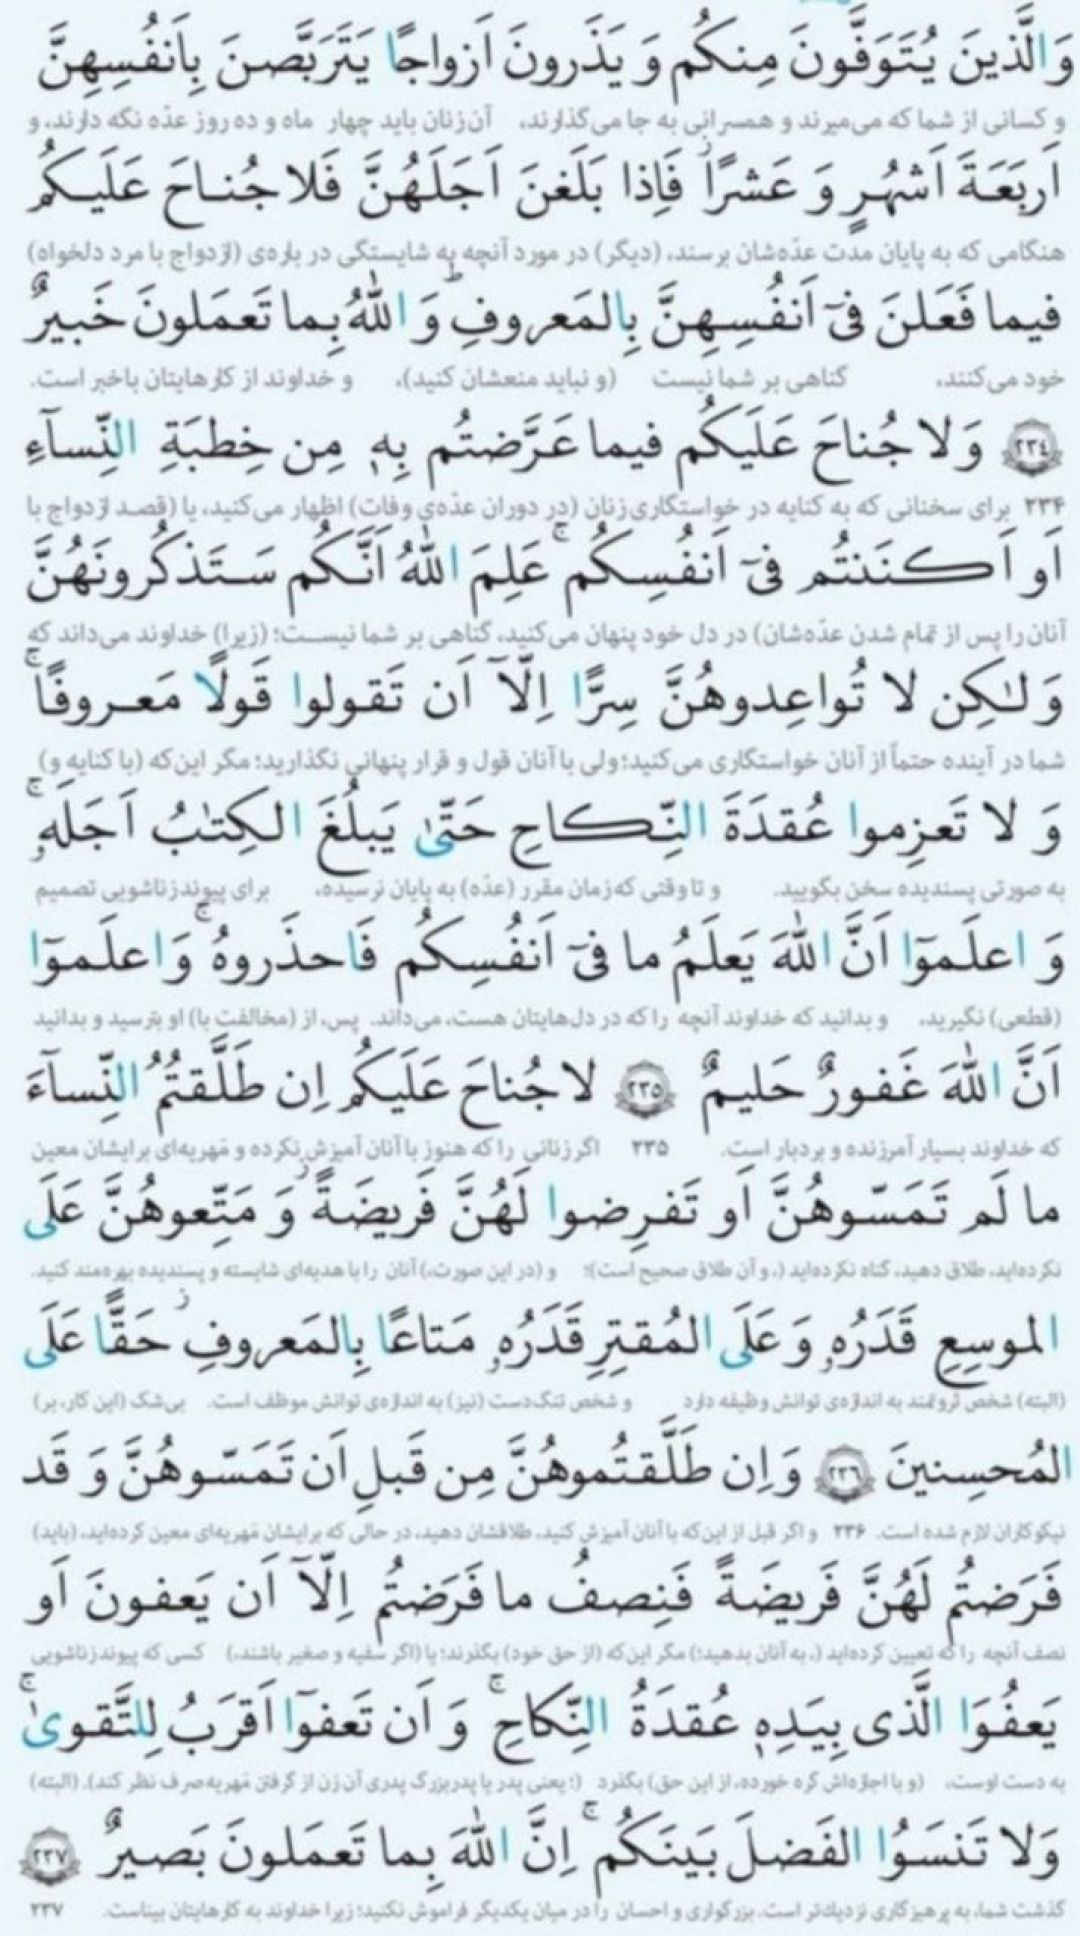 وَالَّذينَ يُتَوَفَّونَ مِنكُم وَ يَذَرونَ اَزواجًا يَتَرَبَّصنَ بِاَنفُسِهِنَّ
و کسانی از شما که می‌میرند و همسرانی به جا می‌گذارند، آن زنان باید چهار ماه و ده روز عدّه نگه دارند، و
اَربَعَةَ اَشهُرٍ وَ عَشرًا ۖ فَاِذا بَلَغنَ اَجَلَهُنَّ فَلا جُناحَ عَلَيكُم
هنگامی که به پایان مدت عدّه‌شان برسند، (دیگر) در مورد آنچه به شایستگی در باره‌ی (ازدواج با مرد دلخواه)
فيما فَعَلنَ فىٓ اَنفُسِهِنَّ بِالمَعروفِ ۗ وَ اللّٰهُ بِما تَعمَلونَ خَبيرٌ
خود می‌کنند، گناهی بر شما نیست (و نباید منعشان کنید)، و خداوند از کارهایتان باخبر است.
﴿٢٣٤﴾ وَلا جُناحَ عَلَيكُم فيما عَرَّضتُم بِهٖ مِن خِطبَةِ النِّسآءِ
۲۳۴ برای سخنانی که به کنایه در خواستگاری زنان (در دوران عدّه‌ی وفات) اظهار می‌کنید، یا (قصد ازدواج با
اَو اَكنَنتُم فىٓ اَنفُسِكُم ۚ عَلِمَ اللّٰهُ اَنَّكُم سَتَذكُرونَهُنَّ
آنان را پس از تمام شدن عدّه‌شان) در دل خود پنهان می‌کنید، گناهی بر شما نیست؛ (زیرا) خداوند می‌داند که
وَ لٰكِن لا تُواعِدوهُنَّ سِرًّا اِلَّآ اَن تَقولوا قَولًا مَعروفًا ۚ
شما در آینده حتماً از آنان خواستگاری می‌کنید؛ ولی با آنان قول و قرار پنهانی نگذارید؛ مگر این‌که (با کنایه و)
وَ لا تَعزِموا عُقدَةَ النِّكاحِ حَتّىٰ يَبلُغَ الكِتٰبُ اَجَلَهٗ ۚ
به صورتی پسندیده سخن بگویید. و تا وقتی که زمان مقرر (عدّه) به پایان نرسیده، برای پیوند زناشویی تصمیم
وَ اعلَموٓا اَنَّ اللّٰهَ يَعلَمُ ما فىٓ اَنفُسِكُم فَاحذَروهُ ۚ وَ اعلَموٓا
(قطعی) نگیرید، و بدانید که خداوند آنچه را که در دل‌هایتان هست، می‌داند. پس، از (مخالفت با) او بترسید و بدانید
اَنَّ اللّٰهَ غَفورٌ حَليمٌ ﴿٢٣٥﴾ لا جُناحَ عَلَيكُم اِن طَلَّقتُمُ النِّسآءَ
که خداوند بسیار آمرزنده و بردبار است. ۲۳۵ اگر زنانی را که هنوز با آنان آمیزش نکرده و مهریه‌ای برایشان معین
ما لَم تَمَسّوهُنَّ اَو تَفرِضوا لَهُنَّ فَريضَةً ۚ وَ مَتِّعوهُنَّ عَلَى
نکرده‌اید، طلاق دهید، گناه نکرده‌اید (، و آن طلاق صحیح است)؛ و (در این صورت،) آنان را با هدیه‌ای شایسته و پسندیده بهره‌مند کنید.
الموسِعِ قَدَرُهٗ وَ عَلَى المُقتِرِ قَدَرُهٗ مَتاعًا بِالمَعروفِ ۖ حَقًّا عَلَى
(البته) شخص ثروتمند به اندازه‌ی توانش وظیفه دارد و شخص تنگ‌دست (نیز) به اندازه‌ی توانش موظف است. بی‌شک (این کار، بر)
المُحسِنينَ ﴿٢٣٦﴾ وَ اِن طَلَّقتُموهُنَّ مِن قَبلِ اَن تَمَسّوهُنَّ وَ قَد
نیکوکاران لازم شده است. ۲۳۶ و اگر قبل از این‌که با آنان آمیزش کنید، طلاقشان دهید، در حالی که برایشان مهریه‌ای معین کرده‌اید، (باید)
فَرَضتُم لَهُنَّ فَريضَةً فَنِصفُ ما فَرَضتُم اِلَّآ اَن يَعفونَ اَو
نصف آنچه را که تعیین کرده‌اید (، به آنان بدهید؛) مگر این‌که (از حق خود) بگذرند؛ یا (اگر سفیه و صغیر باشند،) کسی که پیوند زناشویی
يَعفُوَا الَّذى بِيَدِهٖ عُقدَةُ النِّكاحِ ۚ وَ اَن تَعفوٓا اَقرَبُ لِلتَّقوىٰ ۚ
به دست اوست، (و با اجازه‌اش گره خورده، از این حق) بگذرد (؛ یعنی پدر یا پدربزرگ پدری آن زن از گرفتن مهریه صرف نظر کند). (البته)
وَلا تَنسَوُا الفَضلَ بَينَكُم ۚ اِنَّ اللّٰهَ بِما تَعمَلونَ بَصيرٌ ﴿٢٣٧﴾
گذشت شما، به پرهیزگاری نزدیک‌تر است. بزرگواری و احسان را در میان یکدیگر فراموش نکنید؛ زیرا خداوند به کارهایتان بیناست. ۲۳۷